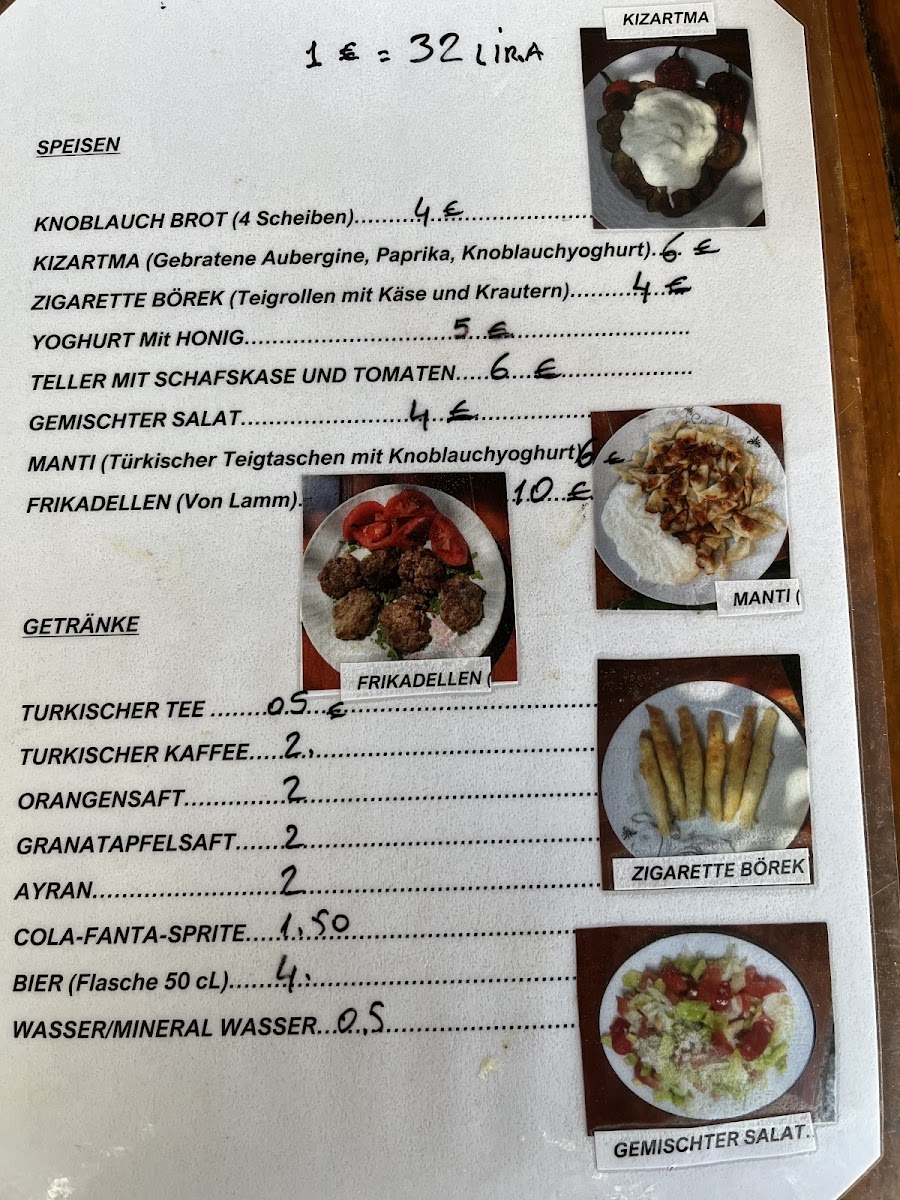 KIZARTMA
1 € = 32 LiRA
SPEISEN
KNOBLAUCH BROT (4 Scheiben)........4 €......................
KIZARTMA (Gebratene Aubergine, Paprika, Knoblauchyoghurt)..6 €
ZIGARETTE BÖREK (Teigrollen mit Käse und Krautern)..........4 €
YOGHURT Mit HONIG..............................5 €..........................
TELLER MIT SCHAFSKASE UND TOMATEN.....6 €....................
GEMISCHTER SALAT........................4 €..................
MANTI (Türkischer Teigtaschen mit Knoblauchyoghurt)6 €
FRIKADELLEN (Von Lamm). 10 €
MANTI (
GETRÄNKE
FRIKADELLEN (
TURKISCHER TEE .......0.5 €..................................
TURKISCHER KAFFEE.....2.......................................
ORANGENSAFT..............2.......................................
GRANATAPFELSAFT.......2.......................................
AYRAN...........................2.......................................
ZIGARETTE BÖREK
COLA-FANTA-SPRITE.....1.50................................
BIER (Flasche 50 cL).......4.....................................
WASSER/MINERAL WASSER...0.5...........................
GEMISCHTER SALAT..